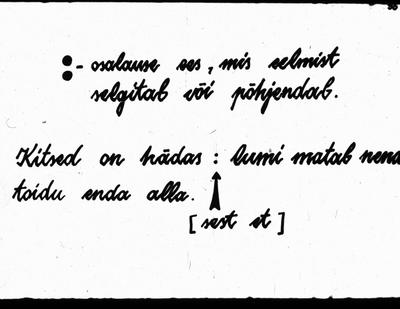 :- osalause ees, mis eelmist
selgitab või põhjendab.
Kitsed on hädas : lumi matab nend
toidu enda alla.
[sest et]